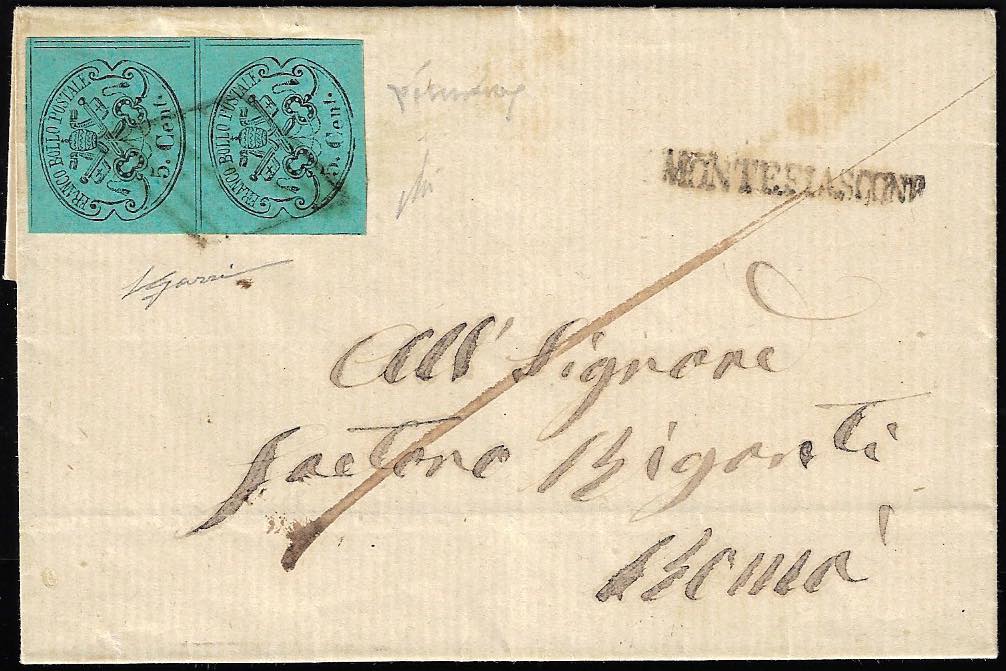 FRANCO BOLLO POSTALE 5. Cent.
FRANCO BOLLO POSTALE 5. Cent.
MONTEFIASCONE
All' Signore
Gaetano Briganti
Roma